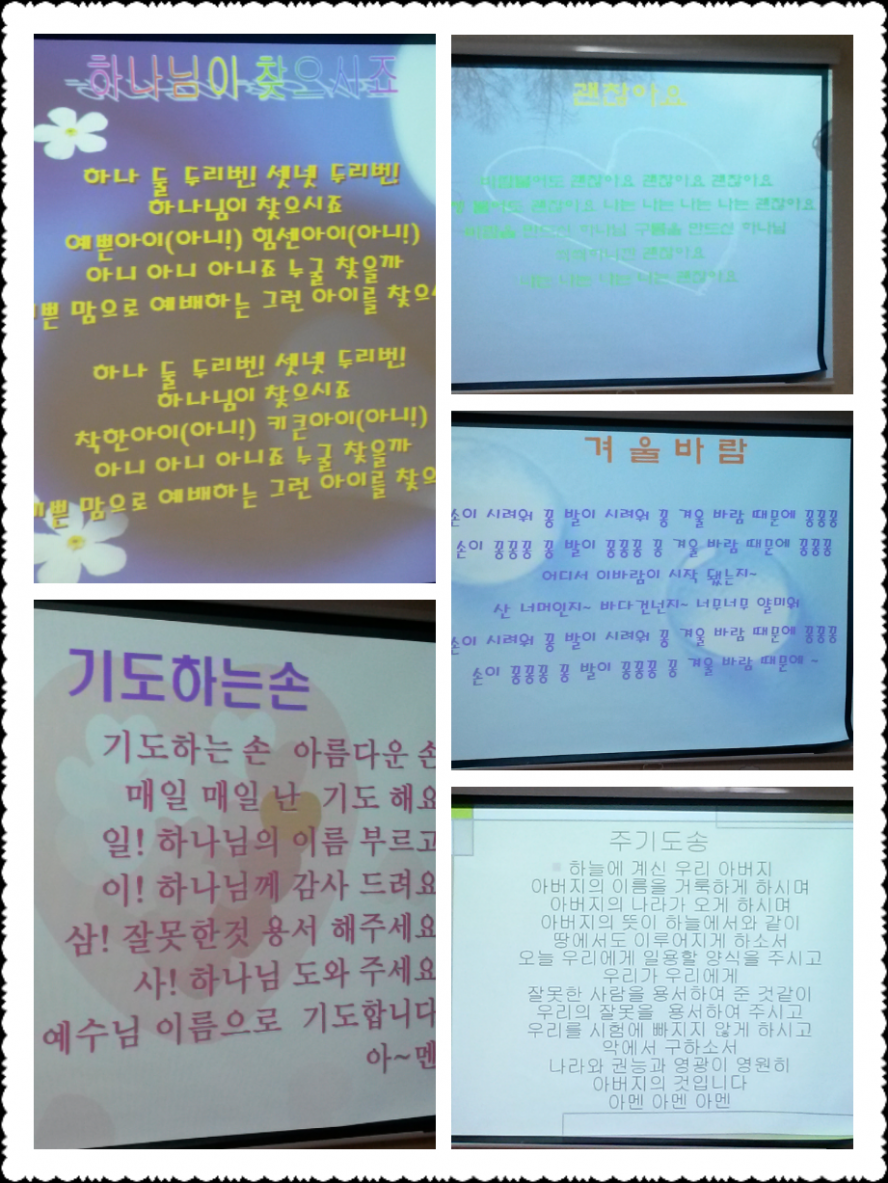 하나님이 찾으시죠
하나 둘 두리번! 셋넷 두리번!
하나님이 찾으시죠
예쁜아이(아니!) 힘센아이(아니!)
아니 아니 아니죠 누굴 찾을까
맘으로 예배하는 그런 아이를
하나 둘 두리번! 셋넷 두리번!
하나님이 찾으시죠
착한아이(아니!) 키큰아이(아니!)
아니 아니 아니죠 누굴 찾을까
맘으로 예배하는 그런 아이를
기도하는손
기도하는 손 아름다운 손
매일 매일 난 기도 해요
일! 하나님의 이름 부르고
이! 하나님께 감사 드려요
삼! 잘못한것 용서 해주세요
사! 하나님 도와 주세요
예수님 이름으로 기도합니다
아~멘
괜찮아요
괜찮아요 괜찮아요 괜찮아요
불어도 괜찮아요 나는 나는 나는 나는 괜찮아요
만드신 하나님 구름을 만드신 하나님
괜찮아요
나는 나는 나는 나는 괜찮아요
겨울바람
손이 시려워 꽁 발이 시려워 꽁 겨울 바람 때문에 꽁꽁꽁
손이 꽁꽁꽁 꽁 발이 꽁꽁꽁 꽁 겨울 바람 때문에 꽁꽁꽁
어디서 이바람이 시작 됐는지~
산 너머인지~ 바다건넌지~ 너무너무 얄미워
손이 시려워 꽁 발이 시려워 꽁 겨울 바람 때문에 꽁꽁꽁
손이 꽁꽁꽁 꽁 발이 꽁꽁꽁 꽁 겨울 바람 때문에 ~
주기도송
하늘에 계신 우리 아버지
아버지의 이름을 거룩하게 하시며
아버지의 나라가 오게 하시며
아버지의 뜻이 하늘에서와 같이
땅에서도 이루어지게 하소서
오늘 우리에게 일용할 양식을 주시고
우리가 우리에게
잘못한 사람을 용서하여 준 것같이
우리의 잘못을 용서하여 주시고
우리를 시험에 빠지지 않게 하시고
악에서 구하소서
나라와 권능과 영광이 영원히
아버지의 것입니다
아멘 아멘 아멘